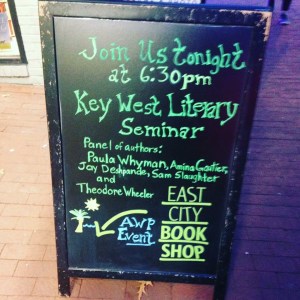 Join Us tonight
at 6:30pm
Key West Literary
Seminar
Panel of authors:
Paula Whyman, Amina Gautier,
Jay Deshpande, Sam Slaughter
and
Theodore Wheeler
AWP
Event
EAST
CITY
BOOK
SHOP